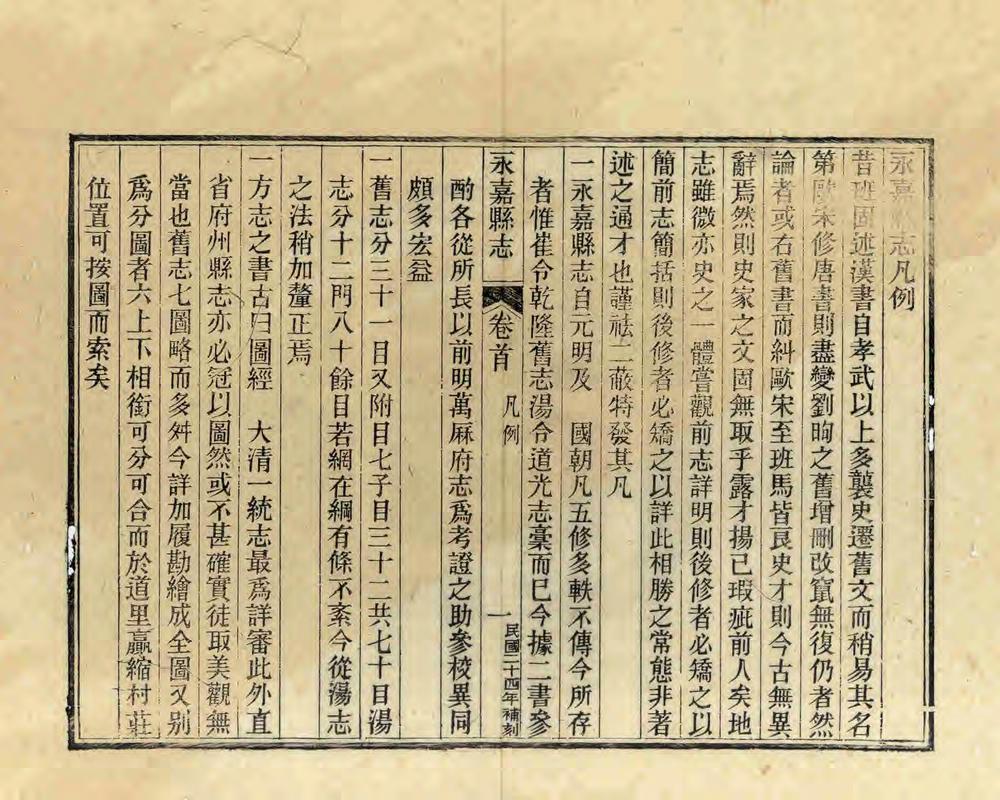 永嘉縣志凡例
昔班固述漢書自孝武以上多襲史遷舊文而稍易其名
第歐宋修唐書則盡變劉昫之舊增刪改竄無復仍者然
論者或右舊書而糾歐宋至班馬皆良史才則今古無異
辭焉然則史家之文固無取乎露才揚己瑕疵前人矣地
志雖微亦史之一體嘗觀前志詳明則後修者必矯之以
簡前志簡括則後修者必矯之以詳此相勝之常態非著
述之通才也謹祛二蔽特發其凡
一永嘉縣志自元明及　國朝凡五修多軼不傳今所存
者惟崔令乾隆舊志湯令道光志稾而已今據二書參
永嘉縣志　卷首　凡例　一　民國二十四年補刻
酌各從所長以前明萬厤府志爲考證之助參校異同
頗多宏益
一舊志分三十一目又附目七子目三十二共七十目湯
志分十二門八十餘目若網在綱有條不紊今從湯志
之法稍加釐正焉
一方志之書古曰圖經　大清一統志最爲詳審此外直
省府州縣志亦必冠以圖然或不甚確實徒取美觀無
當也舊志七圖略而多舛今詳加履勘繪成全圖又别
爲分圖者六上下相銜可分可合而於道里贏縮村莊
位置可按圖而索矣